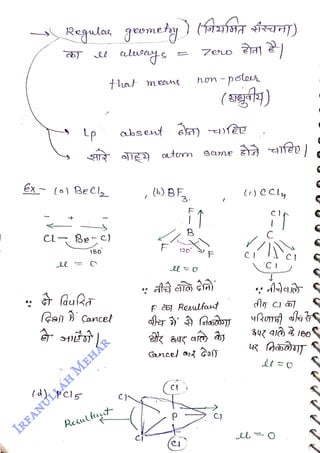 → Regular geometry) (नियमित संरचना)
का μ always = zero होता है|
that means non-polar
(अध्रुवीय)
→ lp absent होना चाहिए,
→ सारे बाह्य atom same होने चाहिए|
Ex- (a) BeCl2 , (b) BF3, (c) CCl4
- + -
Cl - Be - Cl
180°
μ = 0
F
B
F 120° F
μ = 0
Cl
C
Cl Cl Cl
∵ दो विपरित
दिशा में Cancel
हो जाएंगे|
∵ नीचे वाले दोनों
F का Resultant
बीच में से निकलेगा
और ऊपर वाले को
Cancel कर देगा
∵ नीचे वाले
तीन Cl का
परिणामी बीच से
ऊपर वाले के 180°
पर निकलेगा|
μ = 0
(d) PCl5
Resultant
Cl
Cl
P
Cl
Cl
Cl
μ = 0
IRFANULLAH MEHAR